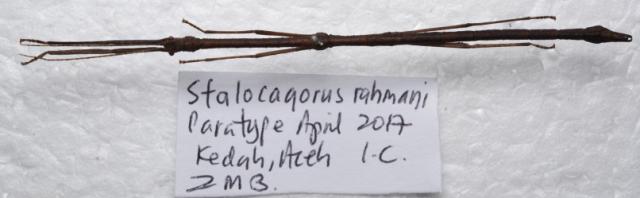 Stalocagorus rahmani
Paratype April 2017
Kedah, Aceh I-C.
ZMB.